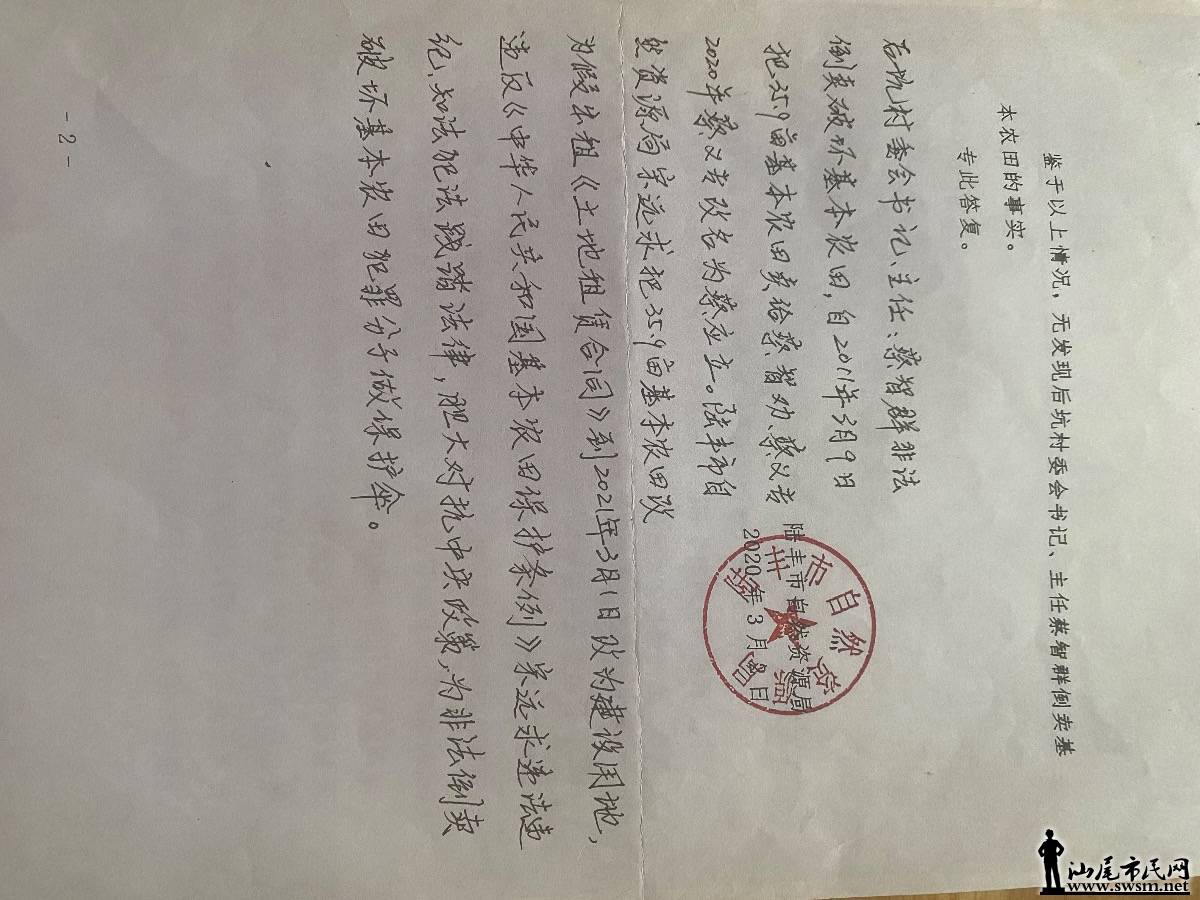 鉴于以上情况，无发现后坑村委会书记、主任蔡智群倒卖基
本农田的事实。
专此答复。
陆丰市自然资源局
2020年3月 日
后坑村委会书记、主任：蔡智群非法
倒卖破坏基本农田，自2011年3月9日
把35.9亩基本农田卖给蔡智劝、蔡义吉
2020年蔡义吉改名为蔡应立。陆丰市自
然资源局宋远求把35.9亩基本农田改
为假出租《土地租赁合同》到2021年3月1日改为建设用地，
违反《中华人民共和国基本农田保护条例》宋远求违法违
纪、知法犯法践踏法律，胆大对抗中央政策，为非法倒卖
破坏基本农田犯罪分子做保护伞。
- 2 -
汕尾市民网
www.swsm.net